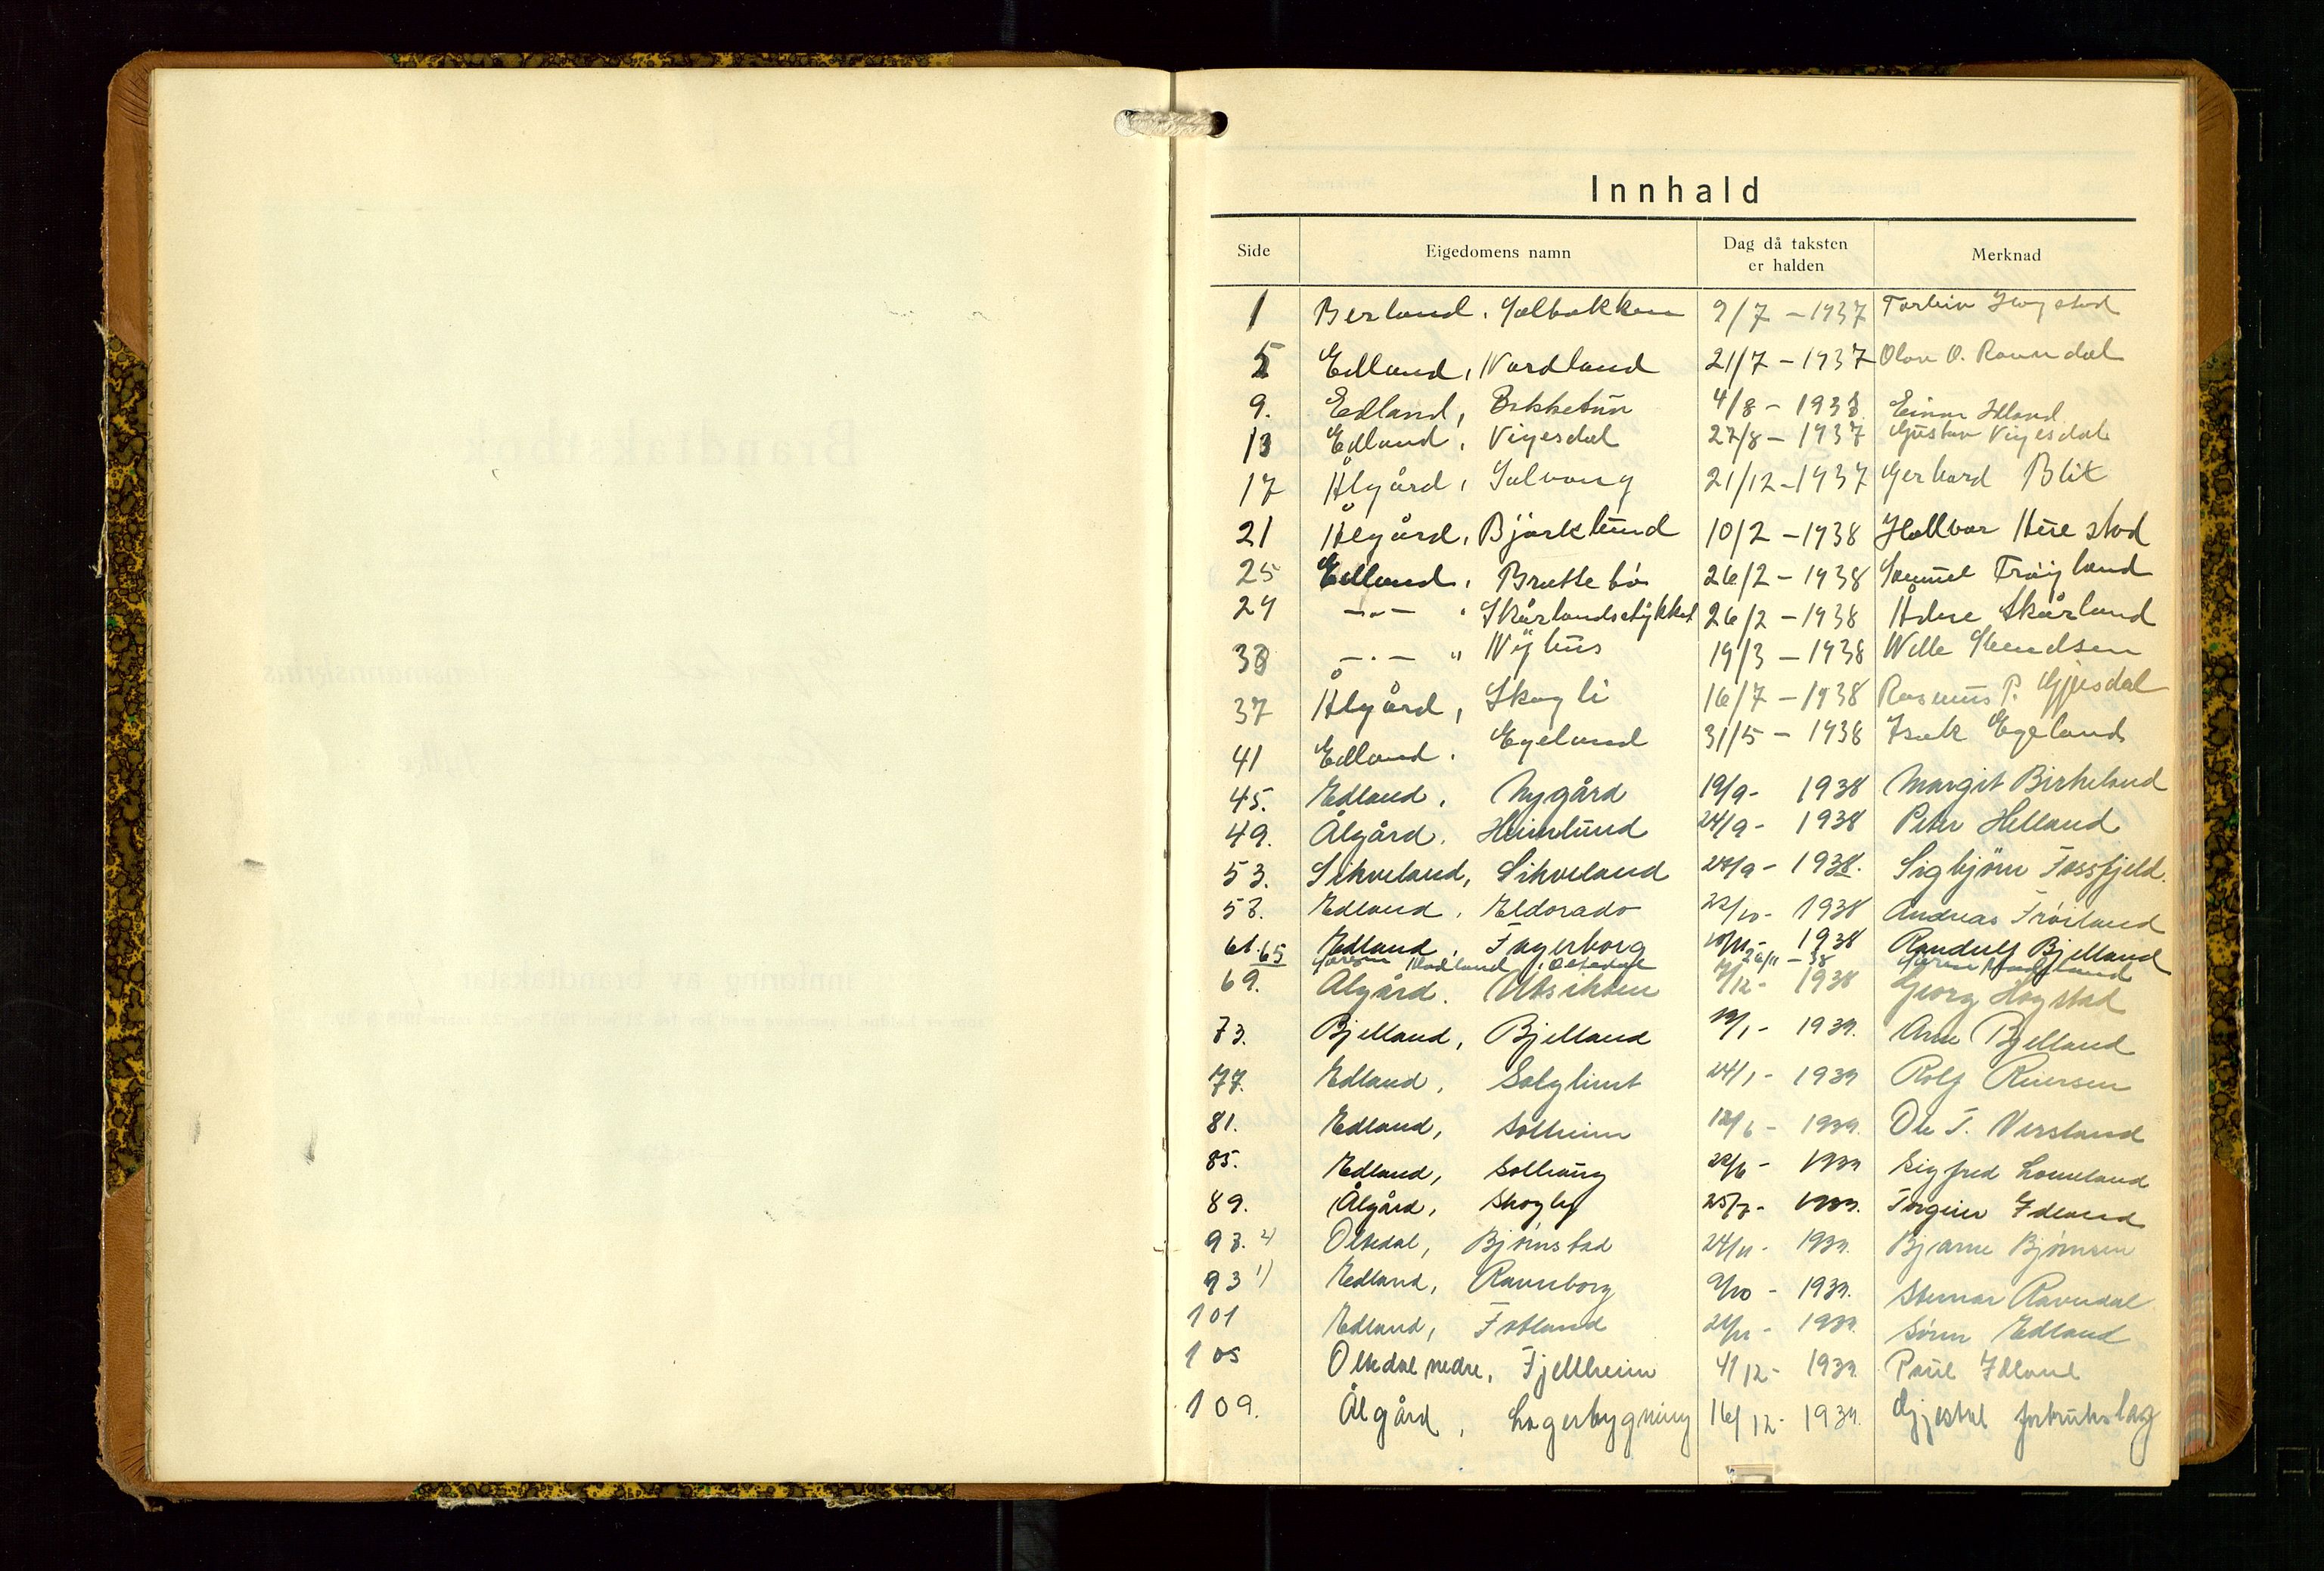 Innhald
Side Eigedomens namn Dag då taksten er halden Merknad
1 Berland, Solbakken 9/7 - 1937 Torleiv Hogstad
5 Edland, Nordland 21/7 - 1937 Olav O. Ravndal
9. Edland, Bekketun 4/8 - 1938 Einar Idland
13 Edland, Vigesdal 27/8 - 1937 Gustav Vigesdal
17 Ålgård, Solvang 21/12 - 1937 Gerhard Blix
21 Ålgård, Bjørklund 10/2 - 1938 Hallvar Herestad
25 Edland, Brattebø 26/2 - 1938 Samuel Frøyland
29 -"- , Skårlandsstykket 26/2 - 1938 Skårland
33 -"- " Nyhus 19/3 - 1938 Knudsen
37 Ålgård, Skogli 16/7 - 1938 Rasmus P. Gjesdal
41 Edland, Egeland 31/5 - 1938 Isak Egeland
45. Edland, Nygård 19/9 - 1938 Margit Birkeland
49. Ålgård, Heimlund 24/9 - 1938 Peter Helland
53. Sikveland, Sikveland 28/9 - 1938. Sigbjørn Fossfjeld.
57. Edland, Eldorado 22/10 - 1938 Andreas Frøiland
61.65 Edland, Fagerborg 10/11 - 1938 Randulf Bjelland
Søren Madland, Oltedal 26/11 - 38 Søren Madland
69. Ålgård, Utsikten 7/12 - 1938 Georg Hogstad
73. Bjelland, Bjelland 19/1 - 1939. Arne Bjelland
77. Edland, Solglimt 24/1 - 1939 Rolf Reiersen
81. Edland, Solheim 12/6 - 1939. Ole T. Nersland
85. Edland, Solhaug 22/6 - 1939 Sigfred Lomeland
89. Ålgård, Skogly 25/7 - 1939. Torgeir Idland
93. 2) Oltedal, Bjørnstad 24/11 - 1939. Bjarne Bjørnsen
93 1) Edland, Ravneborg 9/10 - 1939. Steinar Ravndal
101 Edland, Fotland 24/11 - 1939. Søren Edland
105 Oltedal nedre, Fjellheim 4/12 - 1939. Paul Idland
109. Ålgård, Lagerbygning 16/12 - 1939. Gjestal forbrukslag